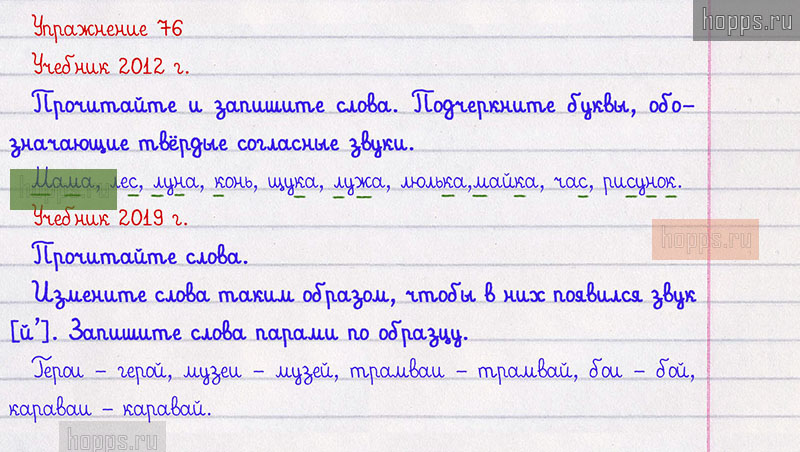 hopps.ru
Упражнение 76
Учебник 2012 г.
Прочитайте и запишите слова. Подчеркните буквы, обо-
значающие твёрдые согласные звуки.
Мама, лес, луна, конь, щука, лужа, люлька,майка, час, рисунок.
hopps.ru
Учебник 2019 г.
hopps.ru
Прочитайте слова.
Измените слова таким образом, чтобы в них появился звук
[й']. Запишите слова парами по образцу.
Герои – герой, музеи – музей, трамваи – трамвай, бои – бой,
караваи – каравай.
hopps.ru